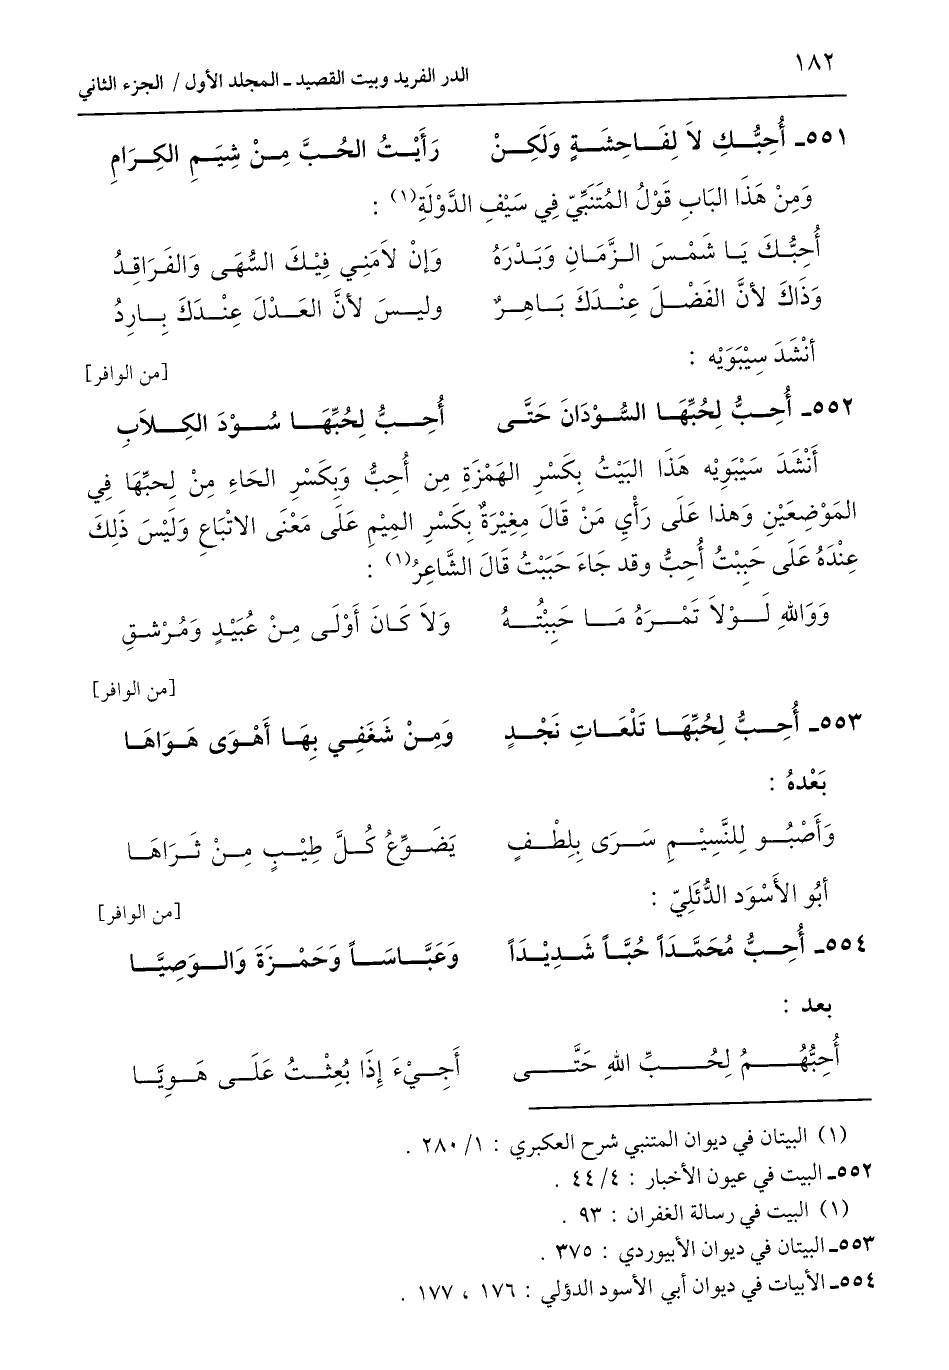 ١٨٢
الدر الفريد وبيت القصيد ـ المجلد الأول / الجزء الثاني
٥٥١ـ أُحِبُّـكِ لاَ لِفَـاحِشَـةٍ وَلَكِـنْ رَأَيْـتُ الحُـبَّ مِـنْ شِيَـمِ الكِـرَامِ
وَمِنْ هَذَا البَابِ قَوْلُ المُتَنَبِّيّ فِي سَيْفِ الدَّوْلَةِ(١) :
أُحِبُّـكَ يَـا شَمْـسَ الـزَّمَـانِ وَبَـدْرَهُ وَإنْ لاَمَنِي فِيْكَ السُّهَى وَالفَرَاقِدُ
وَذَاكَ لأنَّ الفَضْـلَ عِنْـدَكَ بَـاهِـرٌ وليـسَ لأنَّ العَـدْلَ عِنْـدَكَ بِـارِدُ
أنْشَدَ سِيْبَوَيْه :
[من الوافر]
٥٥٢ـ أُحِـبُّ لِحُبِّهَـا السُّـوْدَانَ حَتَّـى أُحِـبُّ لِحُبِّهَـا سُـوْدَ الكِـلاَبِ
أَنْشَدَ سَيْبَوَيْه هَذَا البَيْتُ بِكَسْرِ الهَمْزَةِ مِن أُحِبُّ وَبِكَسْرِ الحَاءِ مِنْ لِحبِّهَا فِي
المَوْضِعَيْنِ وَهذا عَلَى رَأْيِ مَنْ قَالَ مِغِيْرَةٌ بِكَسْرِ المِيْمِ عَلَى مَعْنَى الاتْبَاعِ وَلَيْسَ ذَلِكَ
عِنْدَهُ عَلَى حَبِبْتُ أُحِبُّ وقد جَاءَ حَبَبْتُ قَالَ الشَّاعِرُ(١) :
وَوَاللهِ لَـوْلاَ تَمْـرَهُ مَـا حَبِبْتُـهُ وَلاَ كَـانَ أوْلَى مِـنْ عُبَيْـدٍ وَمُـرْشِـقِ
[من الوافر]
٥٥٣ـ أُحِـبُّ لِحُبِّهَـا تَلْعَـاتِ نَجْـدٍ وَمِـنْ شَغَفِـي بِهَـا أَهْـوَى هَـوَاهَـا
بَعْدهُ :
وَأَصْبُـو لِلنَّسِيْـمِ سَـرَى بِلِطْـفٍ يَضَـوِّعُ كُـلَّ طِيْـبٍ مِـنْ ثَـرَاهَـا
أبُو الأَسْوَد الدُّئَلِيّ :
[من الوافر]
٥٥٤ـ أُحِـبُّ مُحَمَّـدَاً حُبَّـاً شَـدِيْـدَاً وَعَبَّـاسَـاً وَحَمْـزَةَ وَالـوَصِيَّـا
بعد :
أُحِبُّهُـمُ لِحُـبِّ اللهِ حَتَّـى أَجِـيْءَ إِذَا بُعِثْـتُ عَلَـى هَـوِيَّـا
(١) البيتان في ديوان المتنبي شرح العكبري : ١/ ٢٨٠ .
٥٥٢ـ البيت في عيون الأخبار : ٤/ ٤٤ .
(١) البيت في رسالة الغفران : ٩٣ .
٥٥٣ـ البيتان في ديوان الأبيوردي : ٣٧٥ .
٥٥٤ـ الأبيات في ديوان أبي الأسود الدؤلي : ١٧٦ ، ١٧٧ .